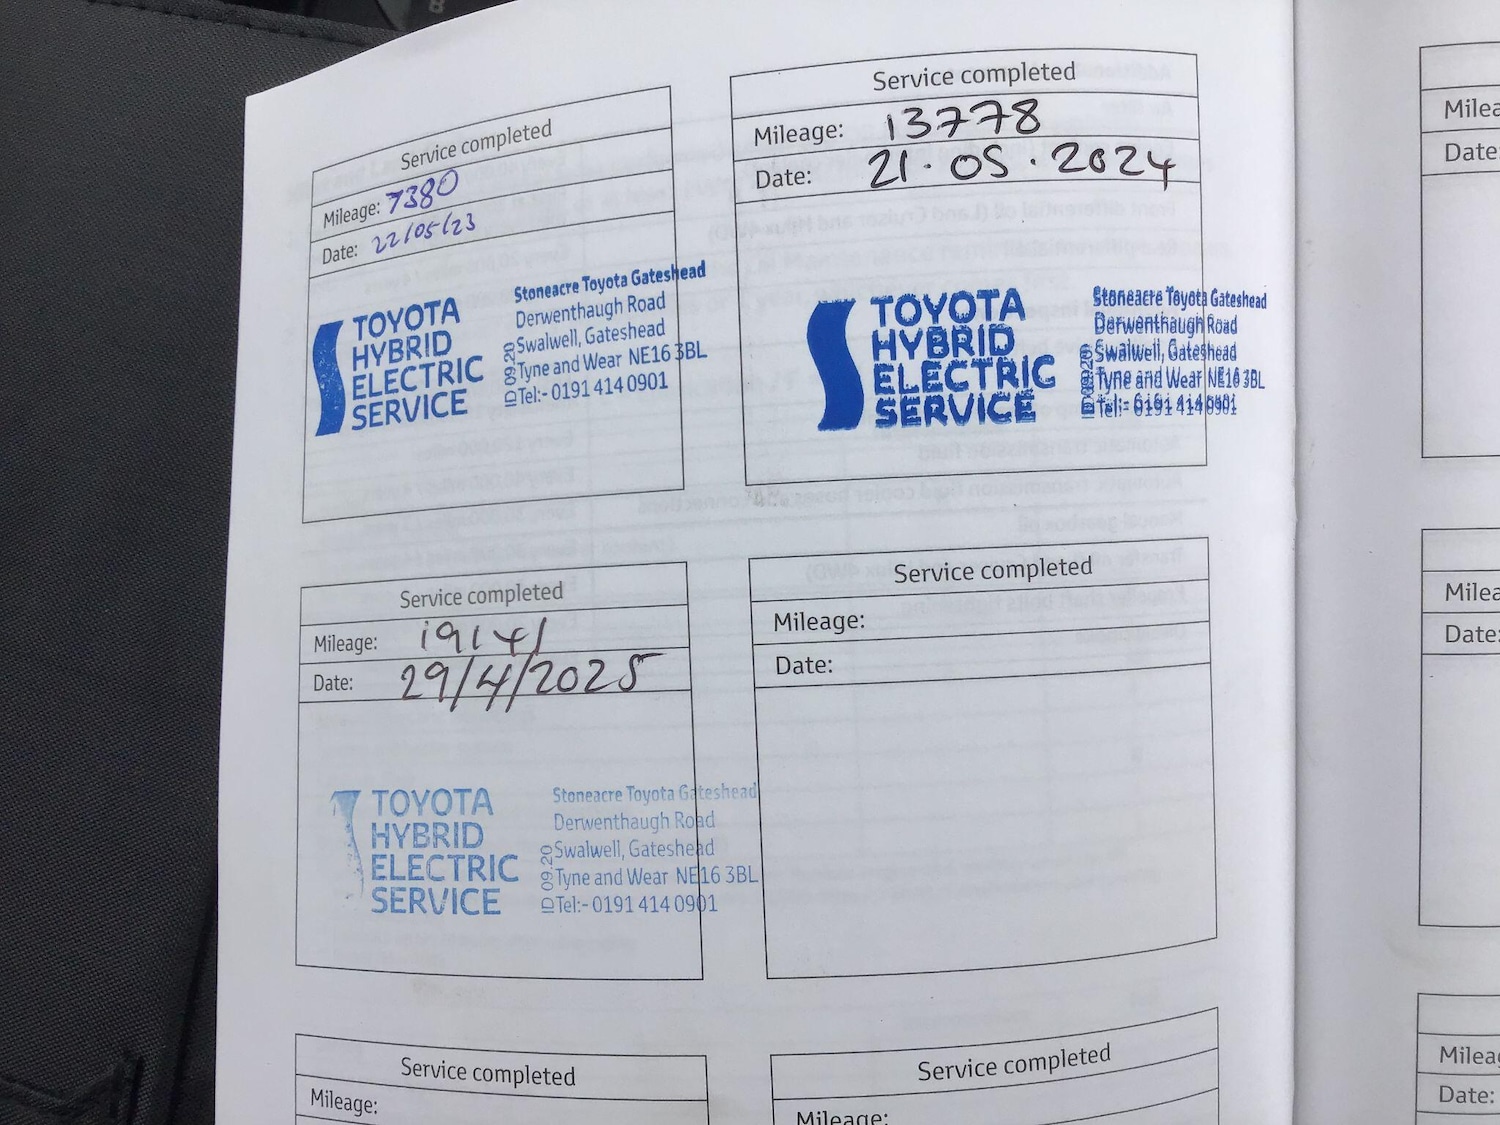 Service completed
Mileage: 7380
Date: 22/05/23
TOYOTA
HYBRID
ELECTRIC
SERVICE
Stoneacre Toyota Gateshead
Derwenthaugh Road
Swalwell, Gateshead
Tyne and Wear NE16 3BL
Tel:- 0191 414 0901
ID 09.20
Service completed
Mileage: 13778
Date: 21.05.2024
TOYOTA
HYBRID
ELECTRIC
SERVICE
Stoneacre Toyota Gateshead
Derwenthaugh Road
Swalwell, Gateshead
Tyne and Wear NE16 3BL
Tel:- 0191 414 0901
ID 09.20
Service completed
Mileage: 19141
Date: 29/4/2025
TOYOTA
HYBRID
ELECTRIC
SERVICE
Stoneacre Toyota Gateshead
Derwenthaugh Road
Swalwell, Gateshead
Tyne and Wear NE16 3BL
Tel:- 0191 414 0901
ID 09.20
Service completed
Mileage:
Date:
Service completed
Mileage:
Service completed
Mileage:
Milea
Date:
Milea
Date:
Milea
Date: